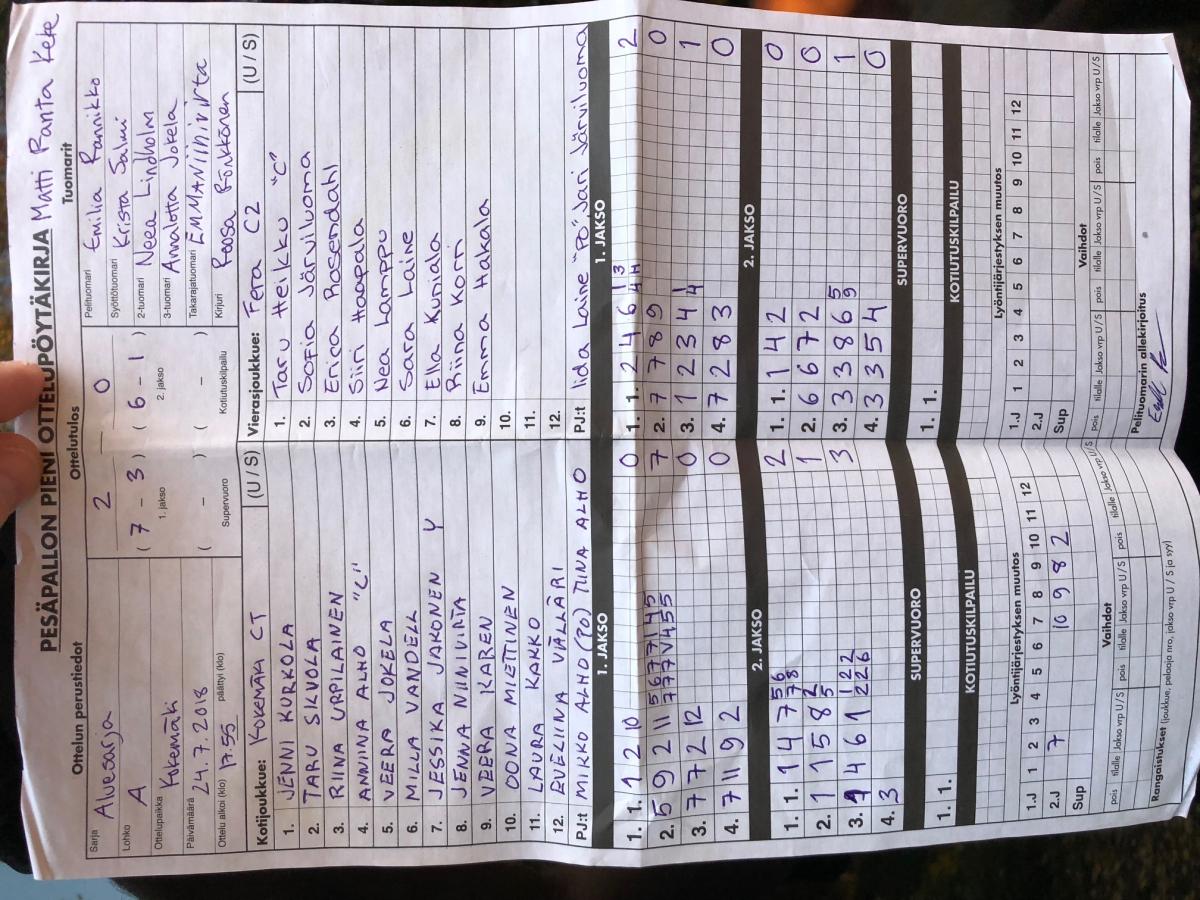 PESÄPALLON PIENI OTTELUPÖYTÄKIRJA Matti Ranta Keke
Ottelun perustiedot
Sarja Aluesarja
Lohko A
Ottelupaikka Kokemäki
Päivämäärä 24.7.2018
Ottelu alkoi (klo) 17.55 päättyi (klo)
Ottelutulos
2 0
( 7 - 3 ) ( 6 - 1 )
1. jakso 2. jakso
( - ) ( - )
Supervuoro Kotiutuskilpailu
Tuomarit
Pelituomari Emilia Rannikko
Syöttötuomari Krista Salmi
2-tuomari Neea Lindholm
3-tuomari Annalotta Jokela
Takarajatuomari EMMANIINIVIRTA
Kirjuri Roosa Rönkkönen
Kotijoukkue: KOKEMÄKI CT (U / S)
1. JENNI KURKOLA
2. TARU SIKVOLA
3. RIINA URPILAINEN
4. ANNIINA ALHO "C"
5. VEERA JOKELA
6. MILLA VANDELL
7. JESSIKA JAKONEN Y
8. JENNA NIINIVIRTA
9. VEERA KAREN
10. OONA MIETTINEN
11. LAURA KAKKO
12. EVELIINA VÄLLÄRI
PJ:t MIKKO ALHO (PO) TIINA ALHO
Vierasjoukkue: Fera C2 (U / S)
1. Taru Heikku "C"
2. Sofia Järviluoma
3. Erica Rosendahl
4. Siiri Haapala
5. Nea Lamppu
6. Sara Laine
7. Ella Kuniala
8. Riina Korri
9. Emma Hakala
10.
11.
12.
PJ:t Iida Laine "PO" Jari Järviluoma
1. JAKSO
1. 1. 1 2 10 0
2. 5 9 2 11 5 6 7 7 1 4 5 7
7 7 7 V 4 5 5
3. 7 7 2 12 0
4. 7 11 9 2 0
2. JAKSO
1. 1. 1 4 7 5 6 2
7 8
2. 1 1 5 8 2 1
5
3. 9 4 6 1 1 2 2 3
2 2 6
4. 3
SUPERVUORO
1. 1.
KOTIUTUSKILPAILU
1. JAKSO
1. 1. 2 4 6 1 3 2
4 H
2. 7 7 8 9 0
3. 1 2 3 4 1 1
4
4. 7 2 8 3 0
2. JAKSO
1. 1. 1 4 2 0
2. 6 6 7 2 0
3. 3 3 8 6 5 1
9
4. 3 3 5 4 0
SUPERVUORO
1. 1.
KOTIUTUSKILPAILU
Lyöntijärjestyksen muutos
1 2 3 4 5 6 7 8 9 10 11 12
1.J
2.J 7 10 9 8 2
Sup
Vaihdot
pois tilalle Jakso vrp U/S pois tilalle Jakso vrp U/S pois tilalle Jakso vrp U/S
Rangaistukset (joukkue, pelaaja nro, jakso vrp U / S ja syy)
Lyöntijärjestyksen muutos
1 2 3 4 5 6 7 8 9 10 11 12
1.J
2.J
Sup
Vaihdot
pois tilalle Jakso vrp U/S pois tilalle Jakso vrp U/S pois tilalle Jakso vrp U/S
Pelituomarin allekirjoitus